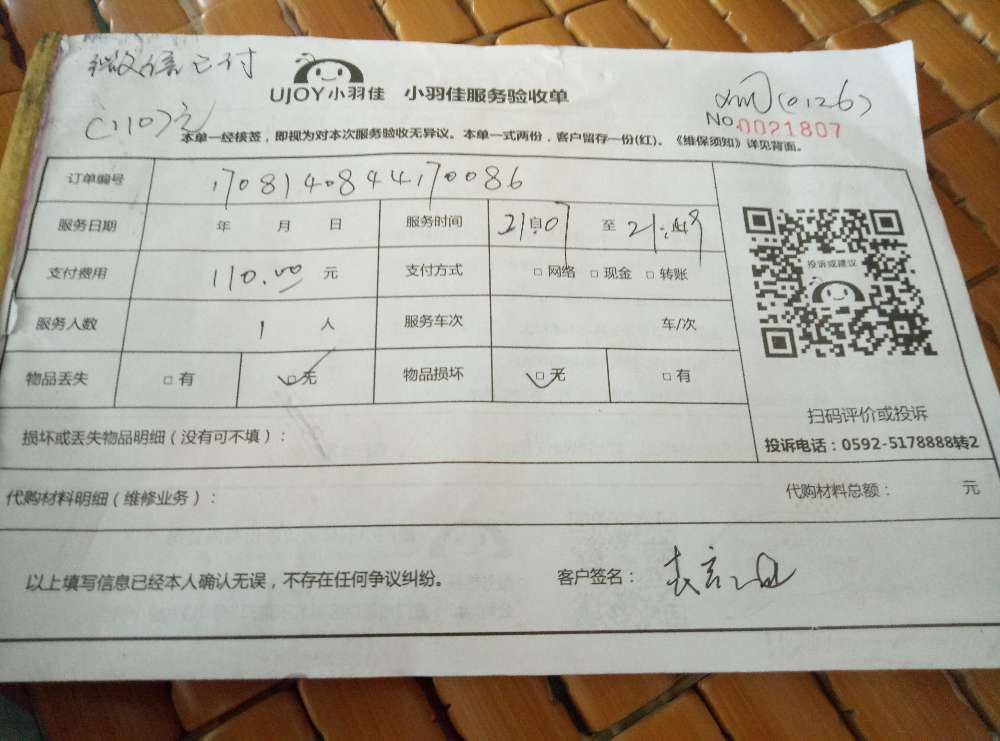 微信已付
110元
UJOY小羽佳 小羽佳服务验收单
xm(0126)
No.0021807
本单一经核签，即视为对本次服务验收无异议。本单一式两份，客户留存一份(红)。《维保须知》详见背面。
订单编号 170814084417008６
服务日期 年 月 日 服务时间 至
支付费用 110.00 元 支付方式 □ 网络 □ 现金 □ 转账
投诉或建议
服务人数 1 人 服务车次 车/次
物品丢失 □ 有 □ 无 物品损坏 □ 无 □ 有
扫码评价或投诉
损坏或丢失物品明细（没有可不填）：
投诉电话：0592-5178888转2
代购材料明细（维修业务）：
代购材料总额： 元
以上填写信息已经本人确认无误，不存在任何争议纠纷。 客户签名：